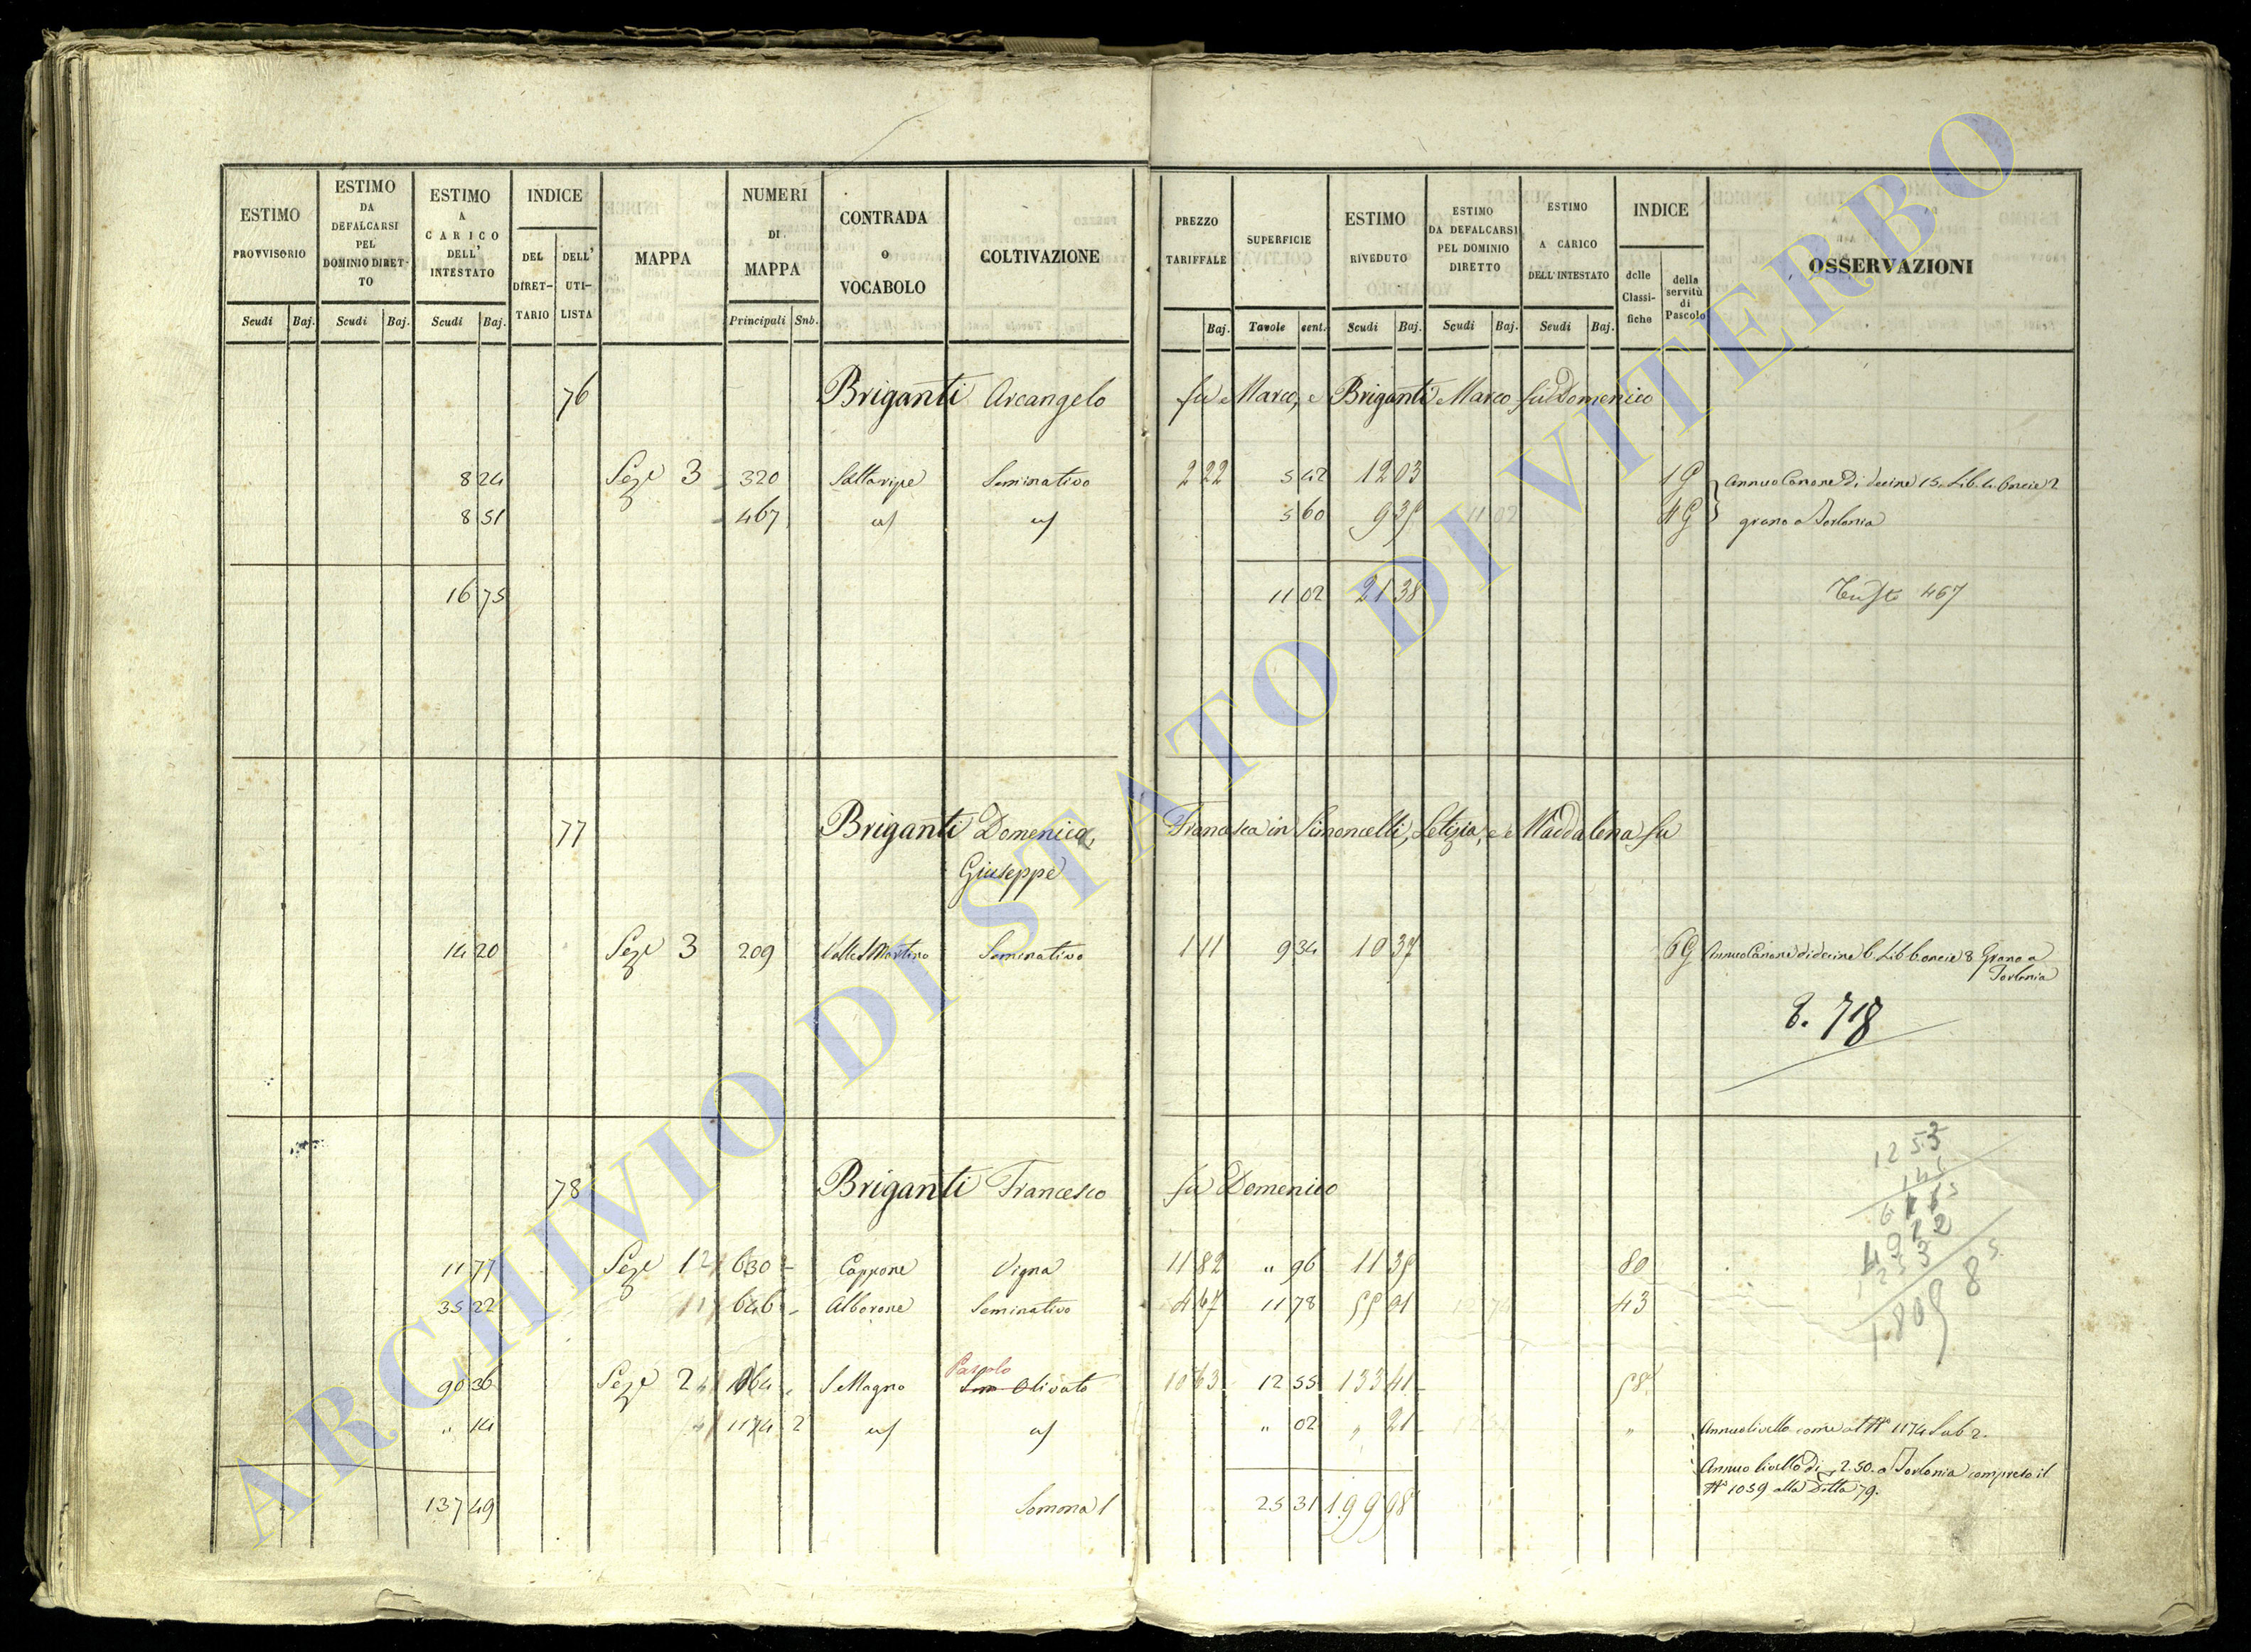 ESTIMO PROVVISORIO
ESTIMO DA DEFALCARSI PEL DOMINIO DIRETTO
ESTIMO A CARICO DELL' INTESTATO
INDICE
DEL DIRETTARIO
DELL' UTILISTA
MAPPA
NUMERI DI MAPPA
CONTRADA o VOCABOLO
COLTIVAZIONE
PREZZO TARIFFALE
SUPERFICIE
ESTIMO RIVEDUTO
ESTIMO DA DEFALCARSI PEL DOMINIO DIRETTO
ESTIMO A CARICO DELL'INTESTATO
INDICE
delle Classifiche
della servitù di Pascolo
OSSERVAZIONI
Scudi Baj. Scudi Baj. Scudi Baj. Principali Sub. Baj. Tavole cent. Scudi Baj. Scudi Baj. Scudi Baj.
76 Briganti Arcangelo fu Marco, e Briganti Marco fu Domenico
8 24 Seze 3 320 Seminativo 2 22 5 42 12 03 1 G Annuo Canone di decine 15. Lib. 4. Oncie 2
8 51 467 5 60 9 35 11 02 4 G grano a Torlonia
16 75 11 02 21 38 467
77 Briganti Domenica, Francesca in Simoncelli, Letizia, e Maddalena fu
Giuseppe
14 20 Seze 3 209 Valle S. Martino Seminativo 1 11 9 34 10 37 6 G Annuo Canone di decine 6. Lib 6. oncie 8 Grano a
Torlonia
718
78 Briganti Francesco fu Domenico
11 77 Seze 1 630 Cappone Vigna 11 82 " 96 11 35 80
35 22 646 Alborone Seminativo 4 67 11 78 55 01 43
Pascolo
90 36 Seze 2 1064 S. Magno Olivato 10 63 12 55 133 41 58
" 14 1174 2 " 02 " 21 " Annuo livello come al N° 1174 Sub 2.
Annuo livello di 2.50. a Torlonia compreso il
N° 1059 alla Ditta 79.
137 49 Somma 25 31 199 98
1253
ARCHIVIO DI STATO DI VITERBO